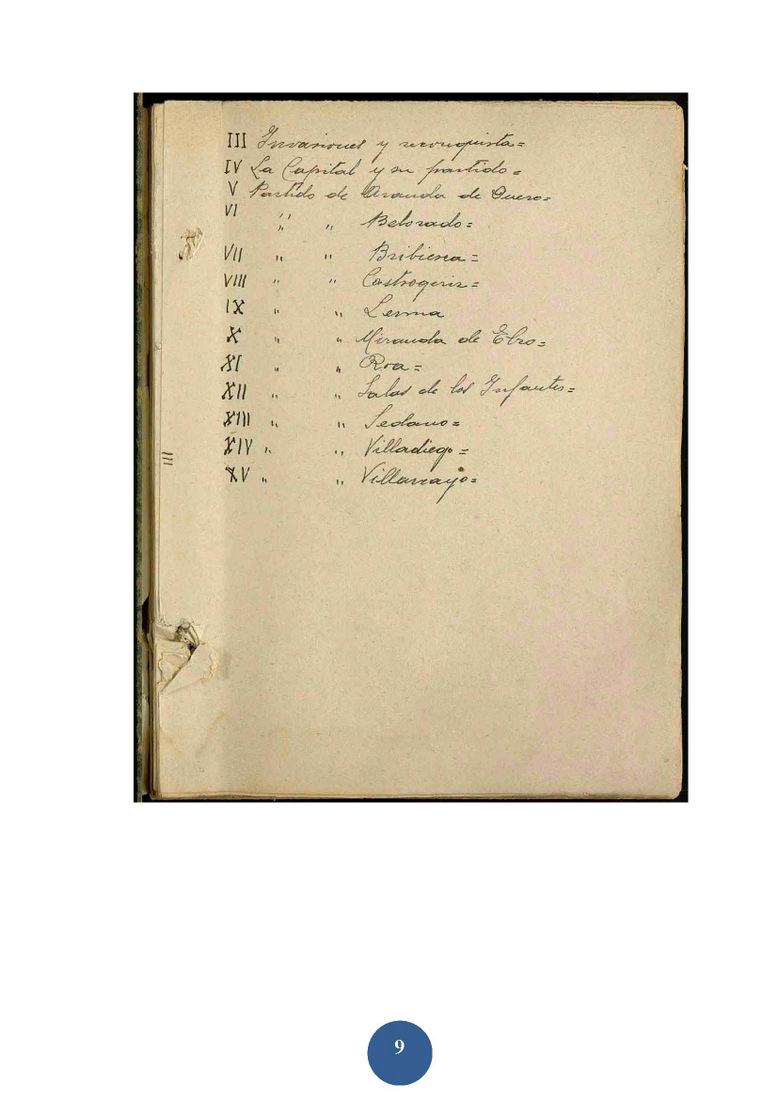 III Invasiones y reconquista=
IV La Capital y su partido=
V Partido de Aranda de Duero=
VI " " Belorado=
VII " " Bribiesca=
VIII " " Castrogeriz=
IX " " Lerma
X " " Miranda de Ebro=
XI " " Roa=
XII " " Salas de los Infantes=
XIII " " Sedano=
XIV " " Villadiego=
XV " " Villarcayo=
9